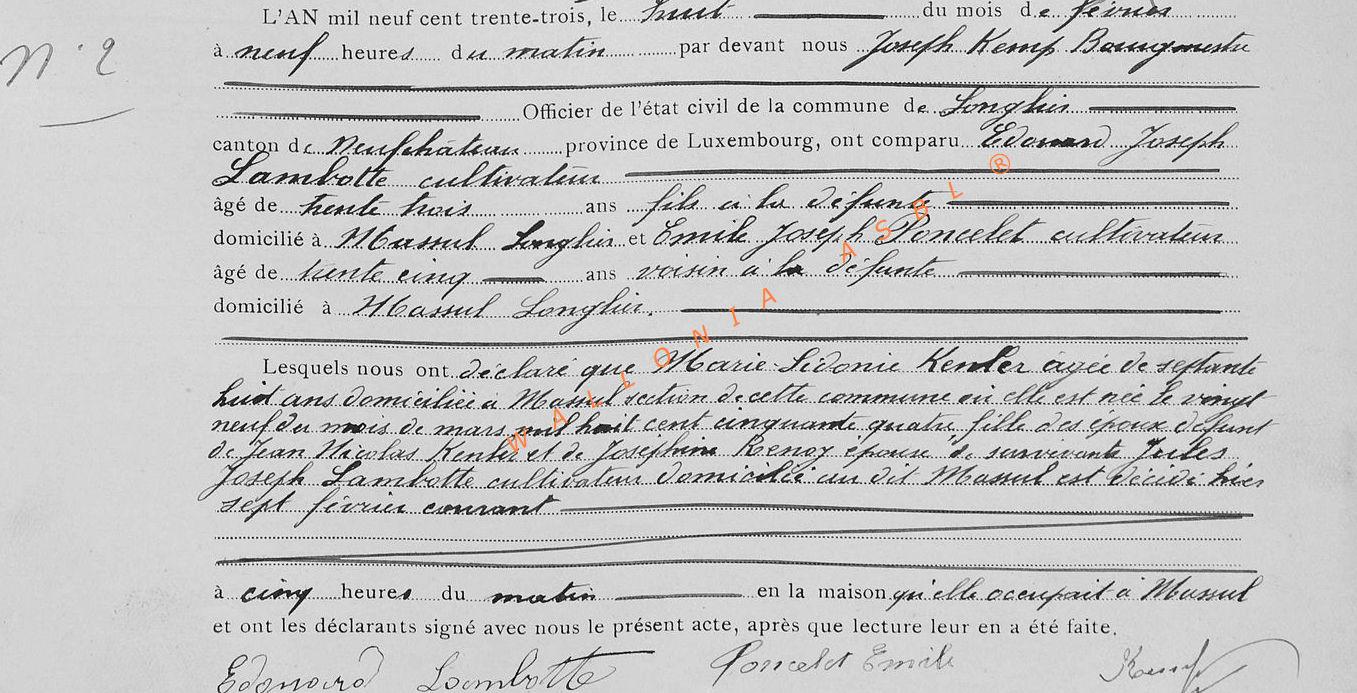 L'AN mil neuf cent trente-trois, le huit du mois de février
N° 2
à neuf heures du matin par devant nous Joseph Kemp Bourgmestre
Officier de l'état civil de la commune de Longlier
canton de Neufchâteau province de Luxembourg, ont comparu Edouard Joseph
Lambotte cultivateur
âgé de trente trois ans fils à la défunte
domicilié à Massul Longlier et Emile Joseph Poncelet cultivateur
âgé de trente cinq ans voisin à la défunte
domicilié à Massul Longlier.
Lesquels nous ont déclaré que Marie Sidonie Kenler âgée de septante
huit ans domiciliée à Massul section de cette commune où elle est née le vingt
neuf du mois de mars mil huit cent cinquante quatre fille des époux défunt
de Jean Nicolas Kenler et de Joséphine Renoy épouse de survivante Jules
Joseph Lambotte cultivateur domicilié au dit Massul est décédé hier
sept février courant
à cinq heures du matin en la maison qu'elle occupait à Massul
et ont les déclarants signé avec nous le présent acte, après que lecture leur en a été faite.
Edouard Lambotte Poncelet Emile Kemp
WALLONIA ASBL ®